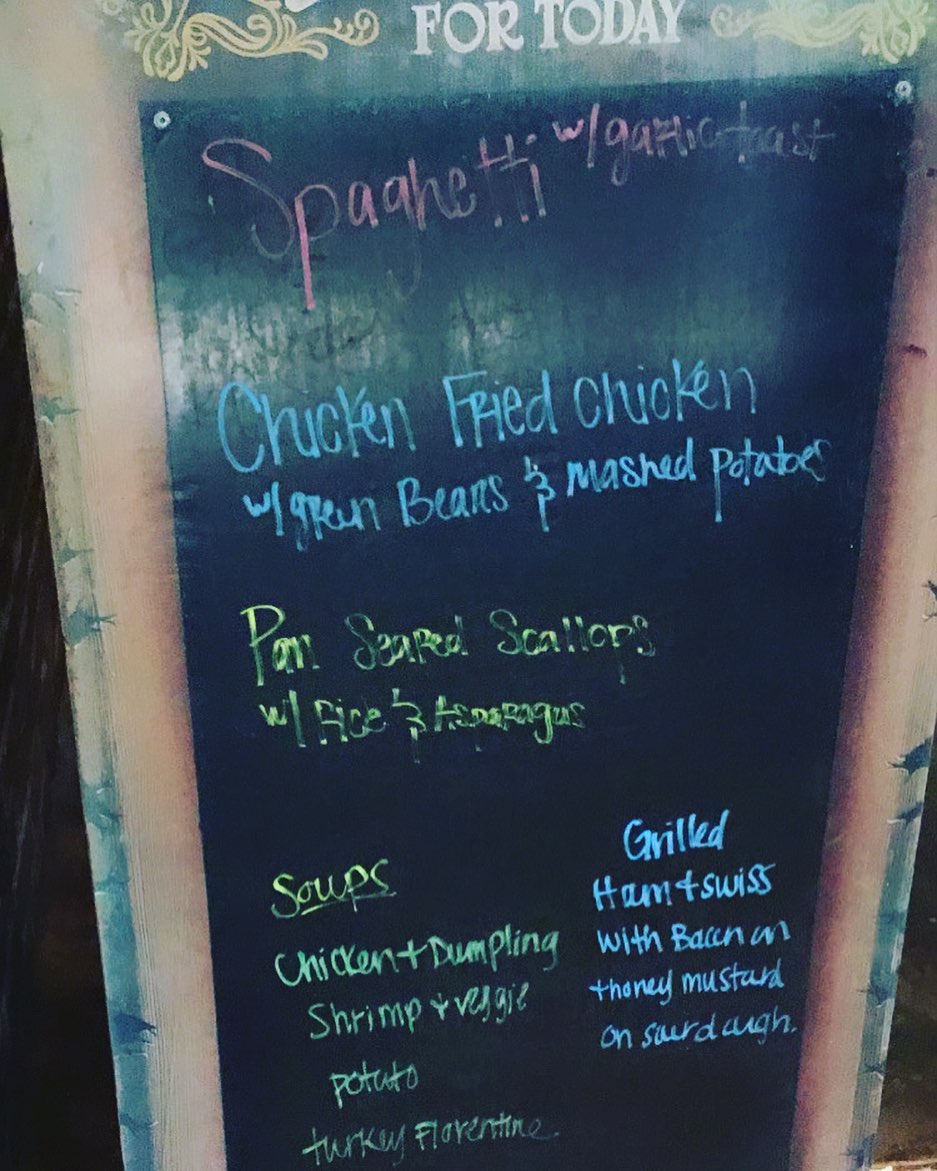 FOR TODAY
Spaghetti w/garlic toast
Chicken Fried Chicken
w/green Beans & Mashed Potatoes
Pan Seared Scallops
w/ Rice & Asparagus
Soups
Chicken + Dumpling
Shrimp + veggie
potato
turkey Florentine.
Grilled
Ham + swiss
with Bacon on
+ honey mustard
on sourdough.